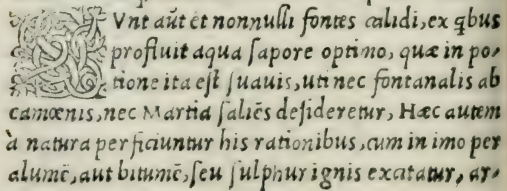 SVnt aũt et nonnulli fontes calidi, ex q̃bus
profluit aqua ſapore optimo, quæ in po-
tione ita eſt ſuauis, uti nec fontanalis ab
camœnis, nec Martia ſaliẽs deſideretur, Hæc autem
à natura perficiuntur his rationibus, cum in imo per
alumẽ, aut bitumẽ, ſeu ſulphur ignis excitatur, ar-